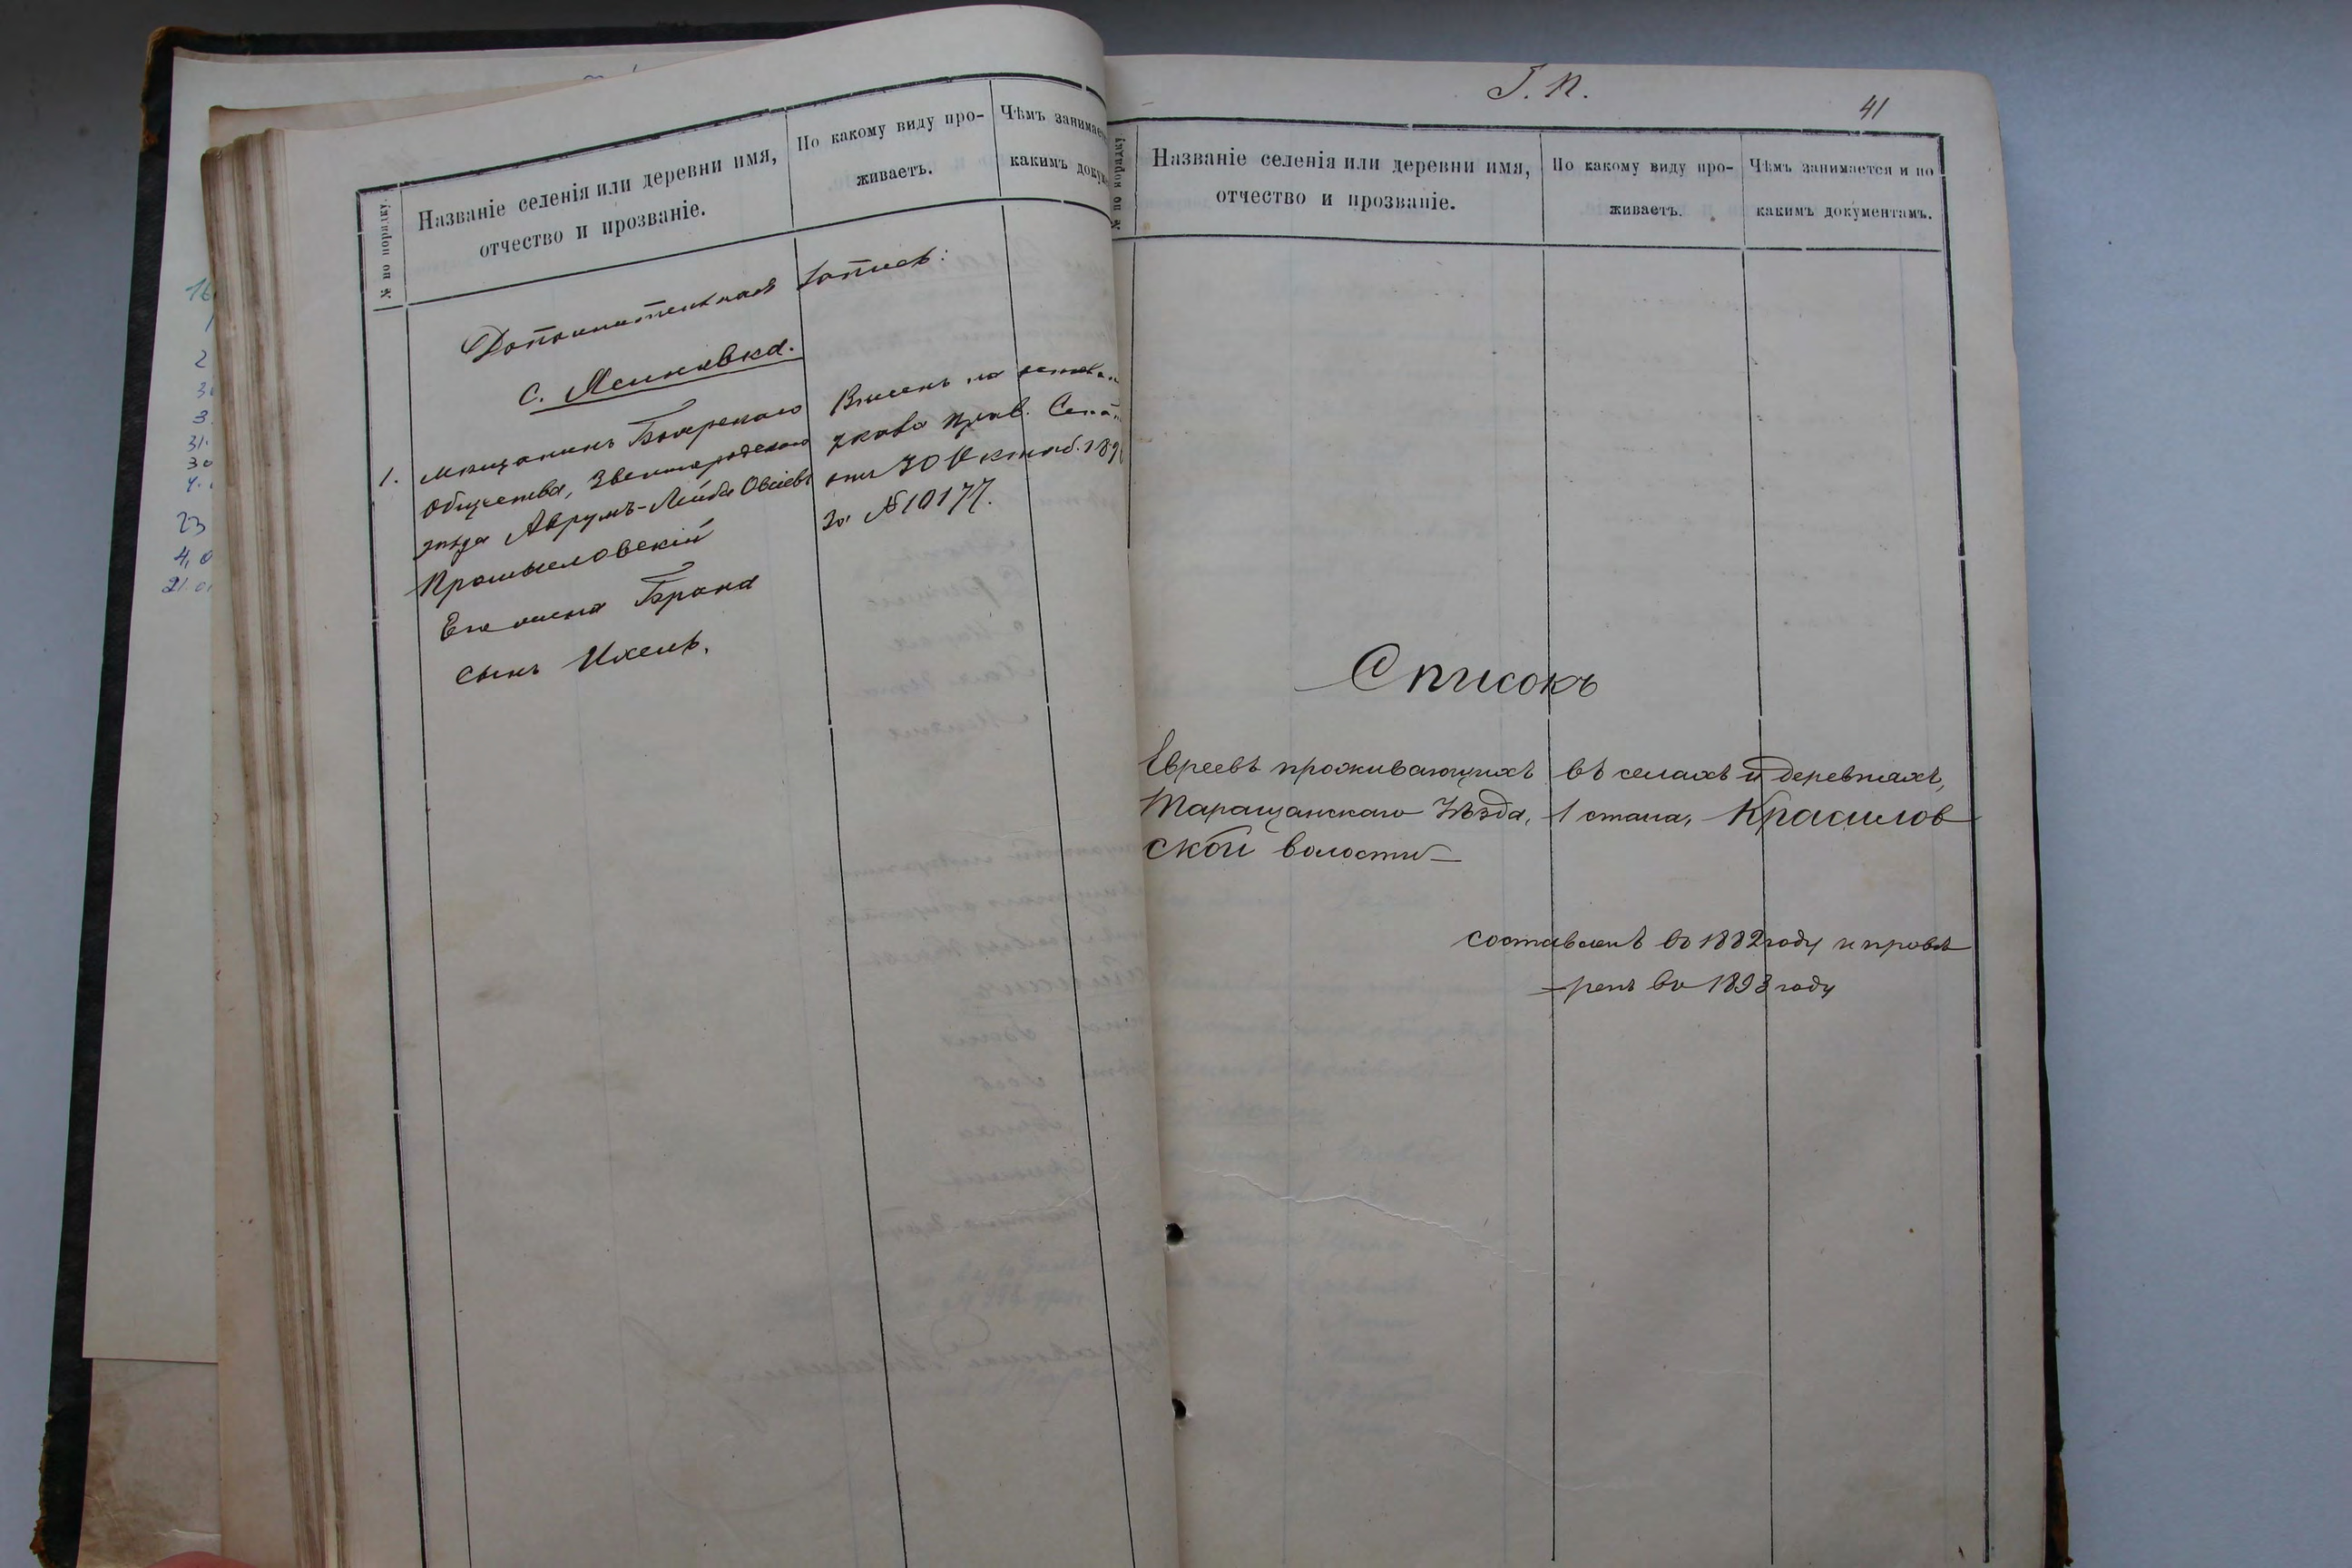 № по порядку.
Названіе селенія или деревни имя,
отчество и прозваніе.
По какому виду про-
живаетъ.
Чѣмъ занимает
какимъ докум
Дополнительная запись:
С. Ясиновка.
1. мѣщанинъ Боярскаго
общества, Звенигородскаго
уѣзда Аврумъ-Лейба Овсіевъ
Промысловскій
Его жена Брана
сынъ Ихель.
Внесенъ на
указа Прав. Сенат
отъ 30 Октяб. 189
За №10177.
І. П.
41
№ по порядку
Названіе селенія или деревни имя,
отчество и прозваніе.
По какому виду про-
живаетъ.
Чѣмъ занимается и по
какимъ документамъ.
Списокъ
Евреевъ проживающихъ въ селахъ и деревняхъ,
Таращанскаго Уѣзда, 1 стана, Красилов
ской волости
составленъ въ 1882 году и провѣ
рен въ 1893 году
16
1
2
3
3.
31.
30
4.
23
4,0
21.01